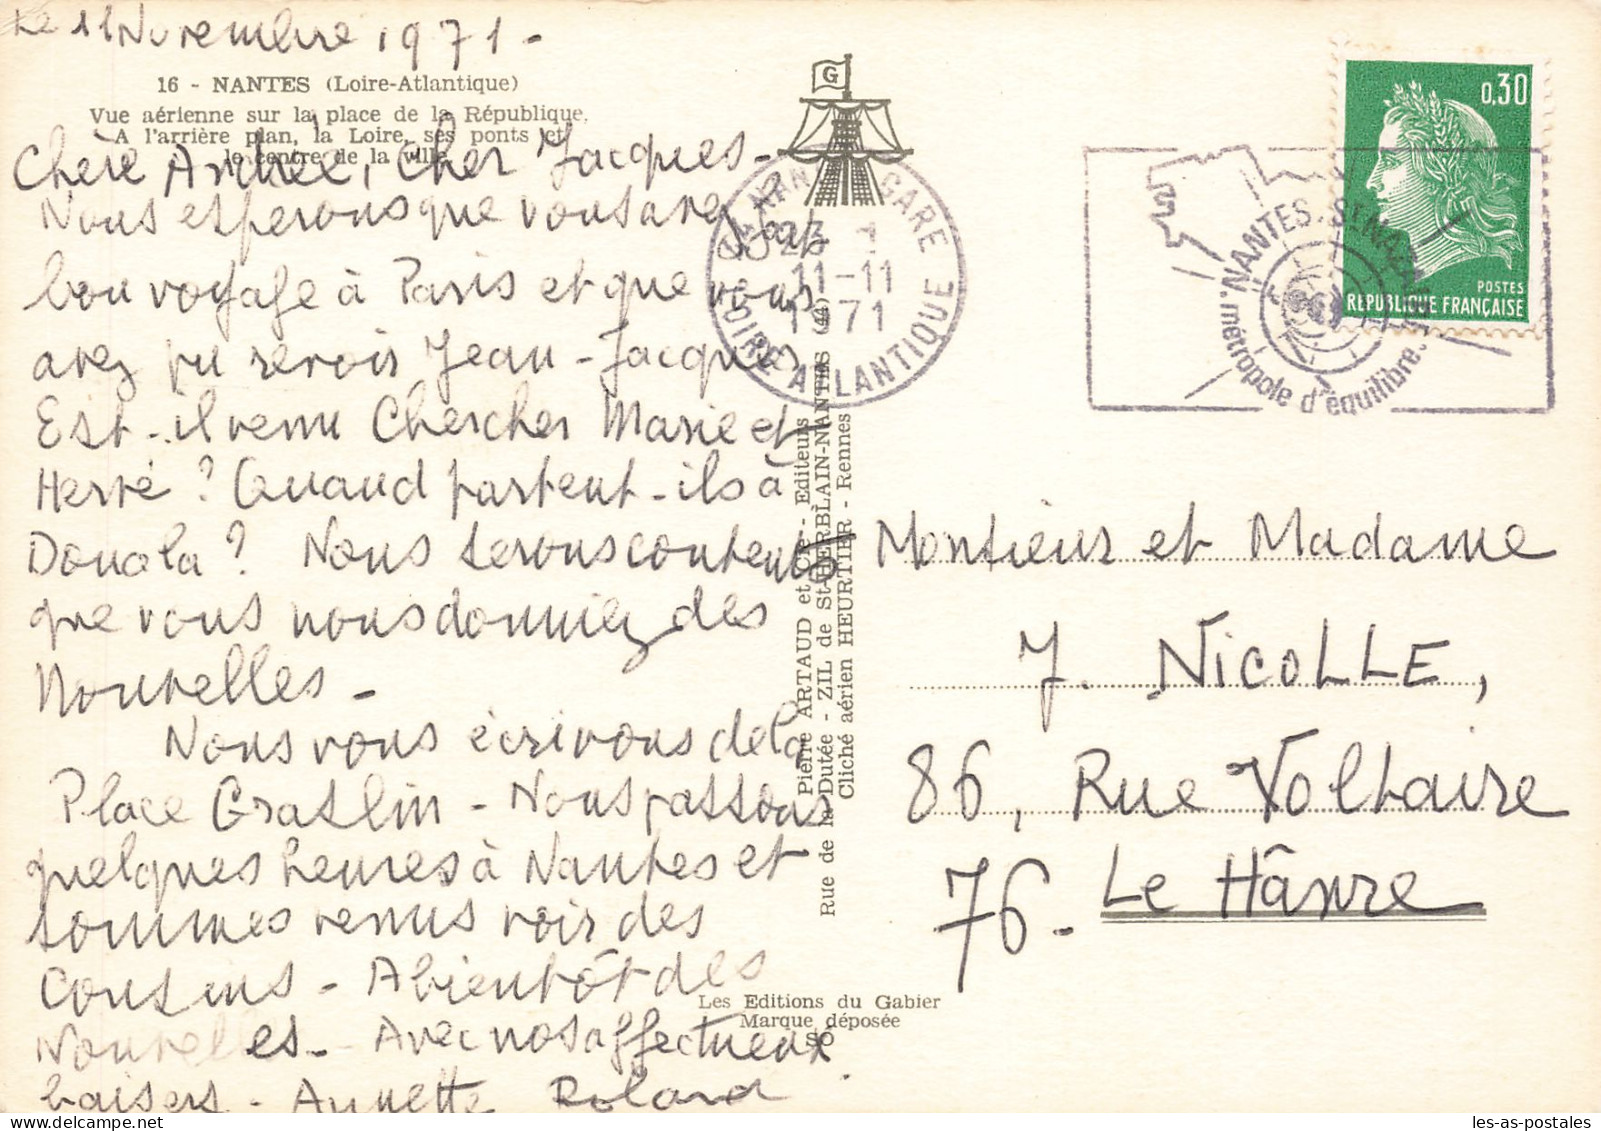 Le 11 Novembre 1971 -
16 - NANTES (Loire-Atlantique)
Vue aérienne sur la place de la République.
A l'arrière plan, la Loire, ses ponts et
le centre de la ville
Chère Andrée, Cher Jacques -
Nous espérons que vous avez fait
bon voyage à Paris et que vous
avez pu revoir Jean-Jacques
Est-il venu Chercher Marie et
Hervé ? Quand partent-ils à
Douala ? Nous serons contents
que vous nous donniez des
Nouvelles -
Nous vous écrivons de la
Place Graslin - Nous passons
quelques heures à Nantes et
sommes venus voir des
Cousins - A bientôt des
Nouvelles - Avec nos affectueux
baisers - Annette Roland
G
NANTES GARE
23
11-11
1971
LOIRE ATLANTIQUE
Pierre ARTAUD et Cie - Editeurs
Rue de la Dutée - ZIL de St-HERBLAIN-NANTES (44)
Cliché aérien HEURTIER - Rennes
Les Editions du Gabier
Marque déposée
SO
NANTES. ST NAZAIRE.
métropole d'équilibre.
0,30
POSTES
REPUBLIQUE FRANÇAISE
Monsieur et Madame
J. NICOLLE,
86, Rue Voltaire
76 - Le Hâvre
les-as-postales